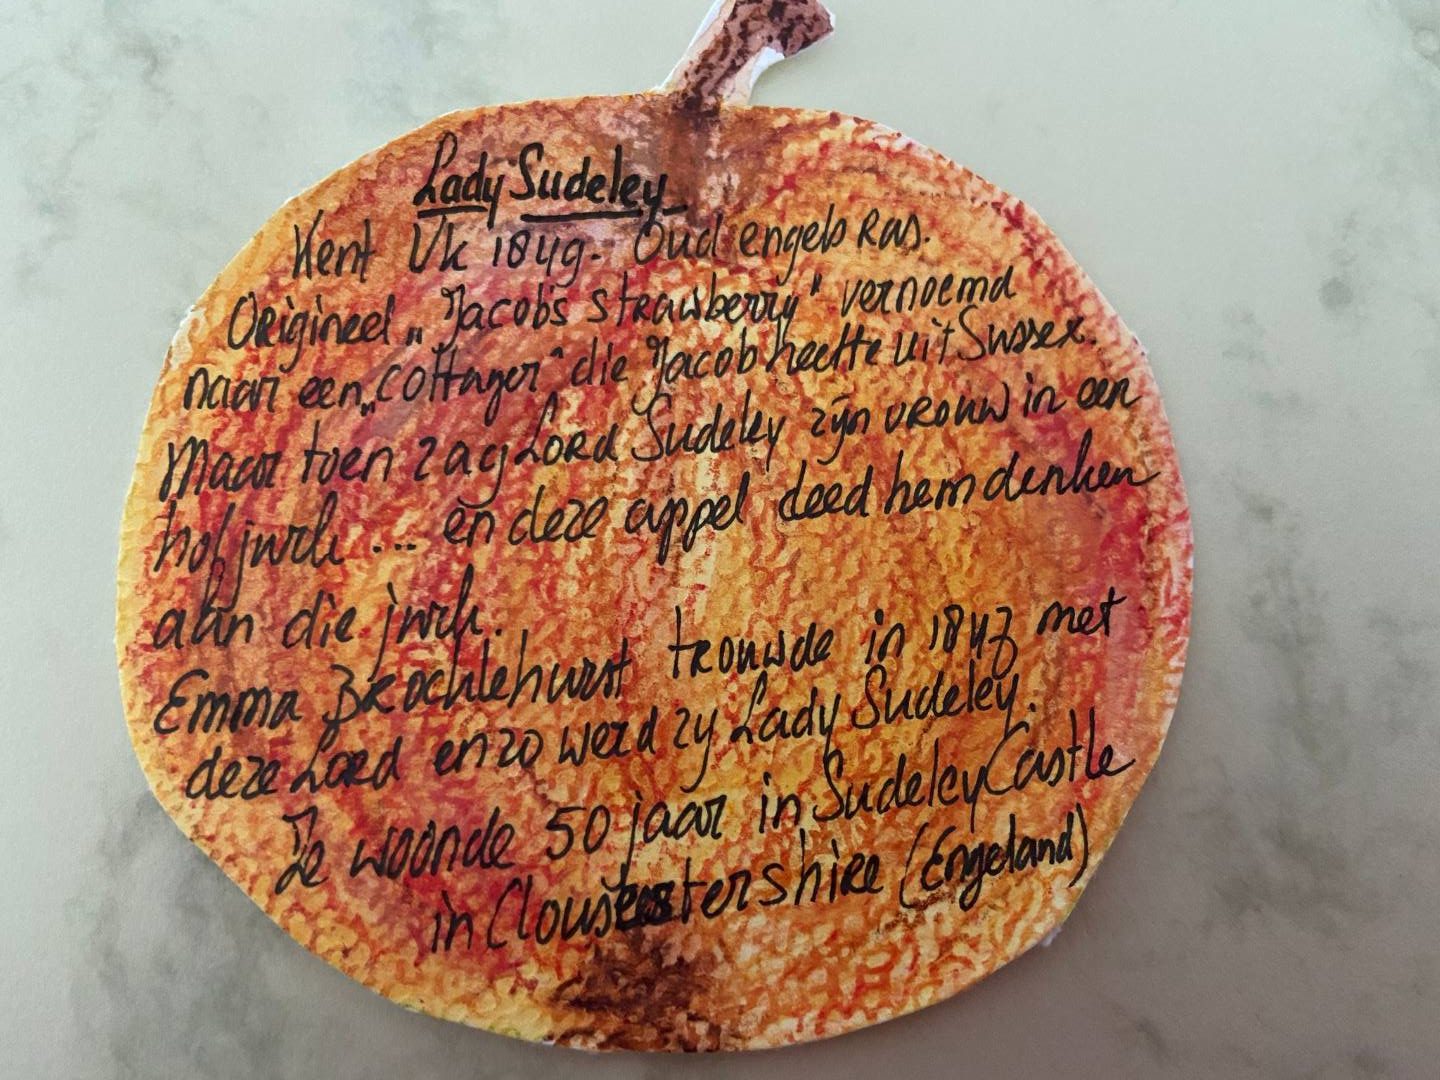 Lady Sudeley
Kent Uk 1849. Oud engels Ras.
Origineel „Jacob's strawberry" vernoemd
naar een „cottager" die Jacob heette uit Sussex.
Maar toen zag Lord Sudeley zijn vrouw in een
hofjurk ... en deze appel deed hem denken
aan die jurk.
Emma Brocklehurst trouwde in 1847 met
deze Lord en zo werd zij Lady Sudeley.
Ze woonde 50 jaar in Sudeley Castle
in Cloustershire (Engeland)